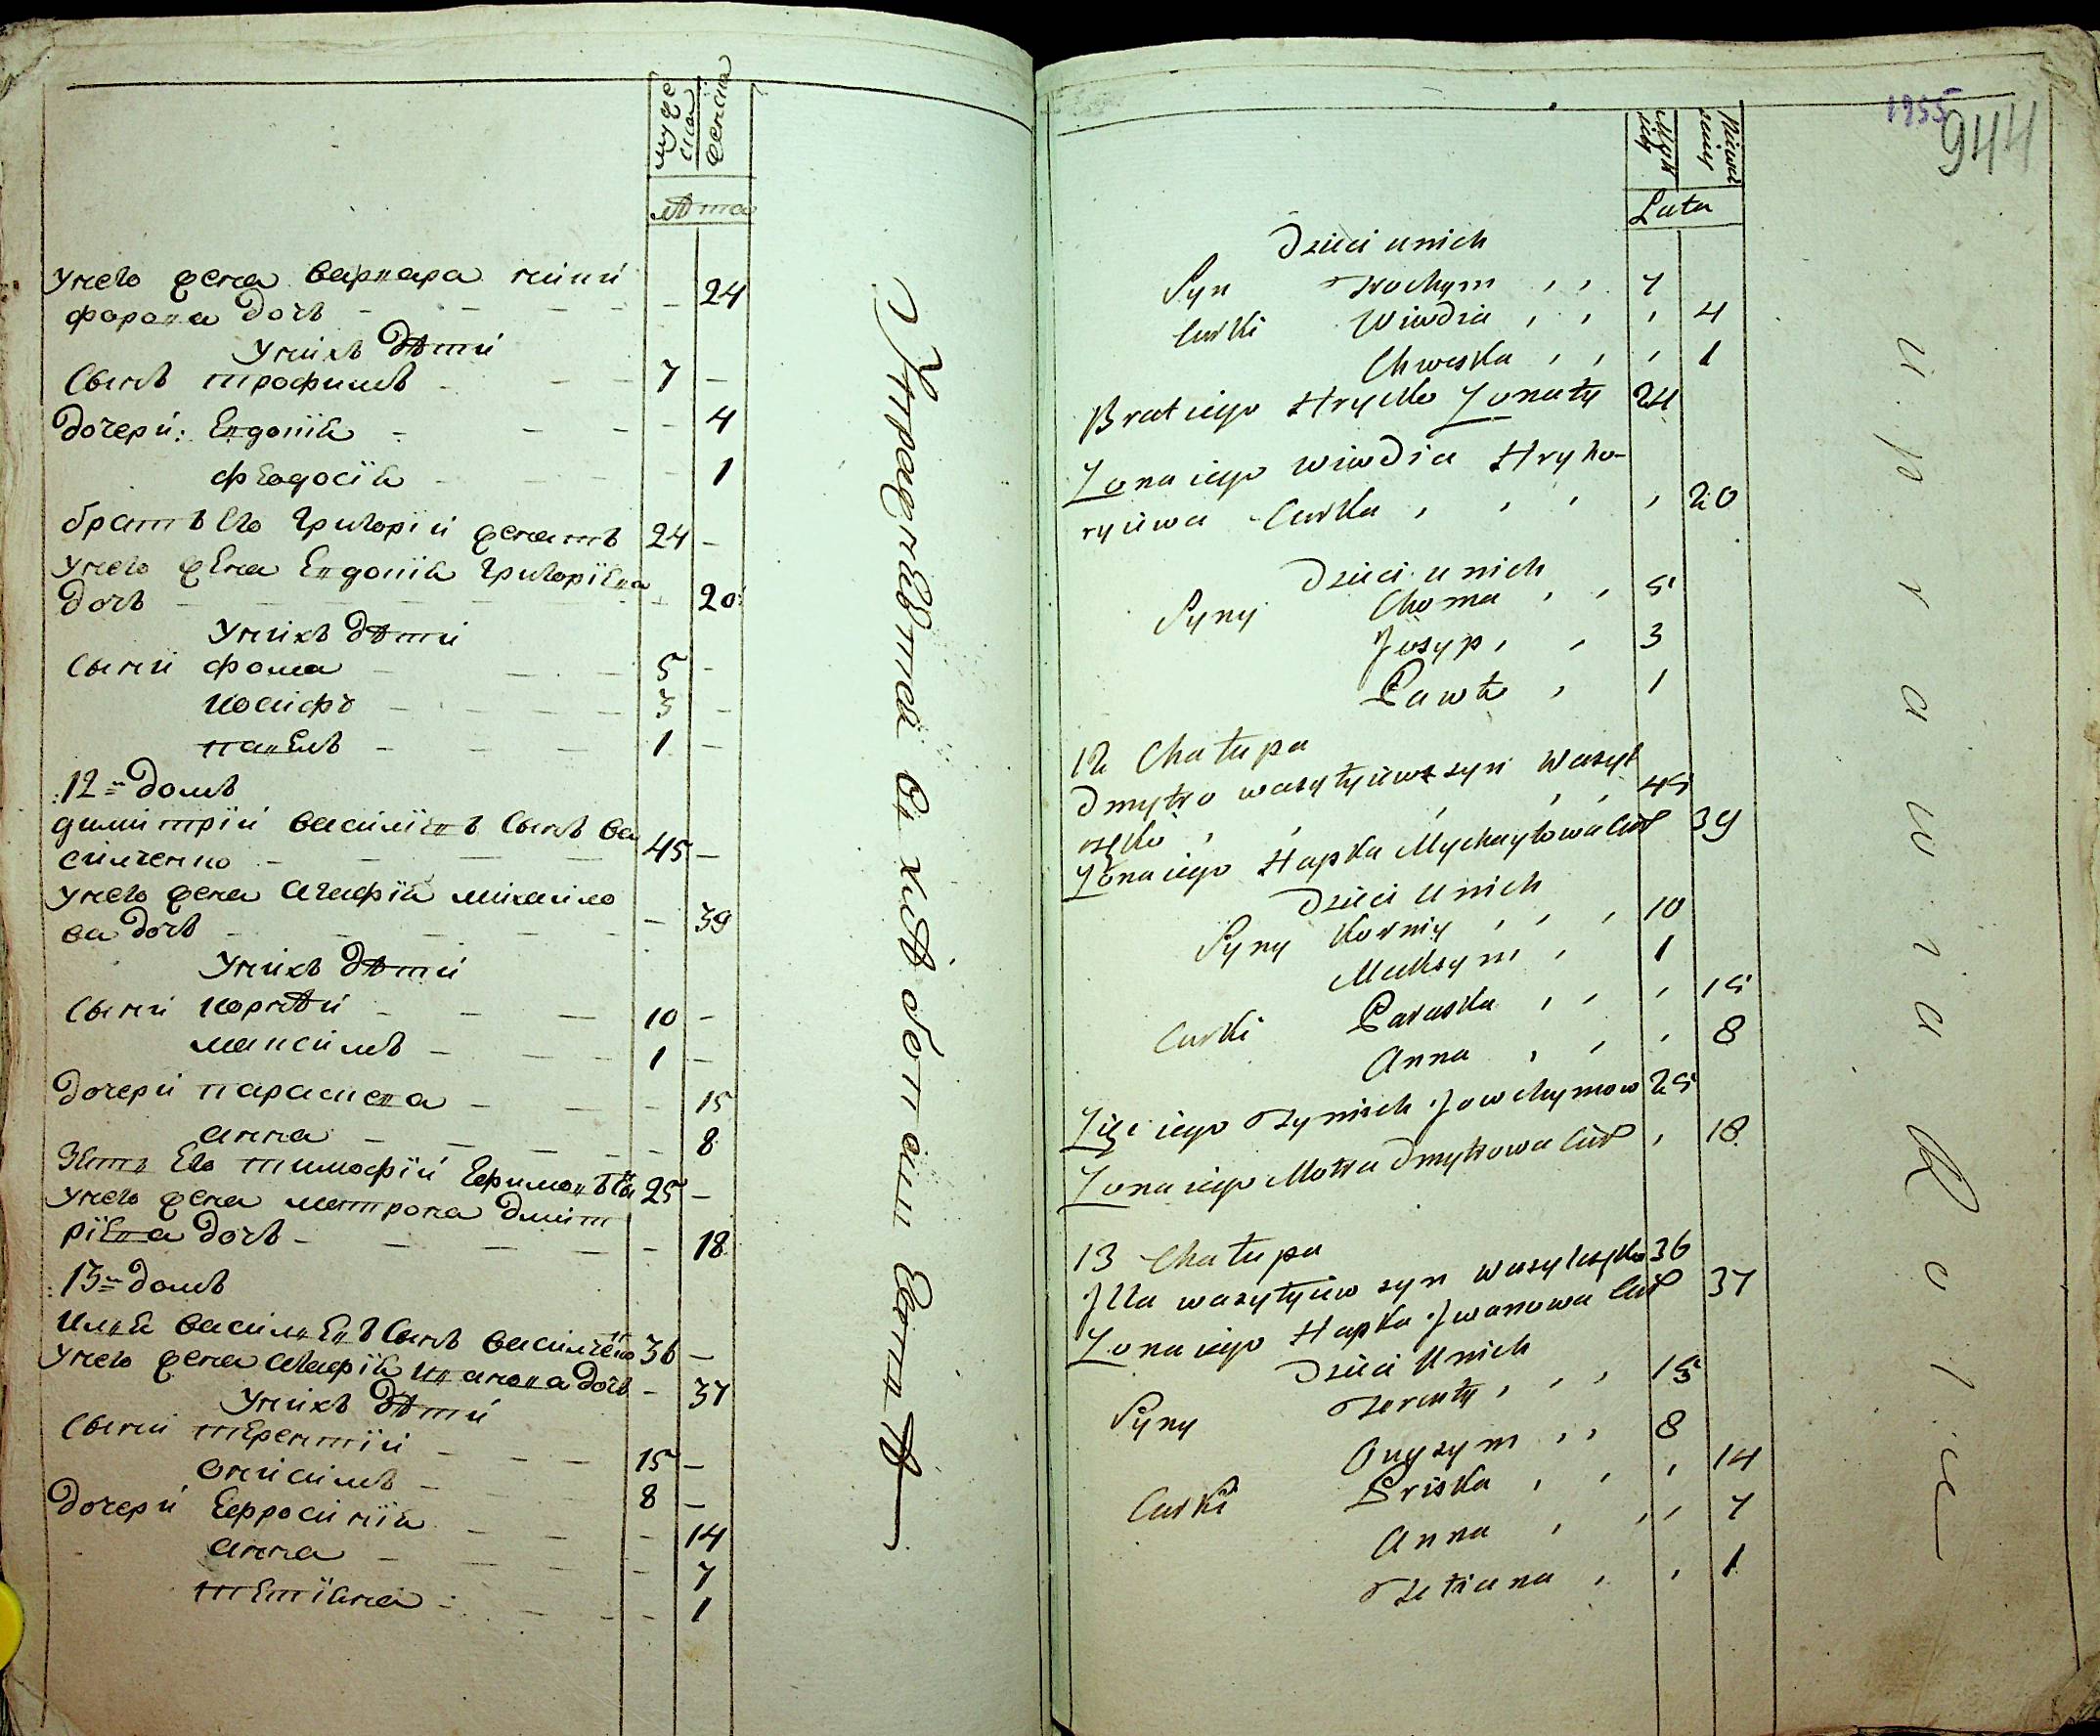 мужеска
женска
лѣта
Унего жена Варвара ники
форова дочь 24
Унихъ дѣти
Сынъ трофимъ 7
дочери: Евдокія 4
феодосія 1
братъ Его Григорій женатъ 24
Унего жена Евдокія Григоріева
дочь 20
Унихъ дѣти
Сыни фома 5
иосифъ 3
павелъ 1
12 домъ
димитрій васил󠆬іевъ Сынъ ва
силченко 45
Унего жена Агафія михайло
ва дочь 39
Унихъ дѣти
Сыни корнѣй 10
максимъ 1
дочери параскева 15
анна 8
Зять Его тимофій Ефимовъ 25
Унего жена матрона дмит
ріева дочь 18
13 домъ
Илья васильевъ Сынъ василченко 36
Унего жена Агафія ивановна дочь 37
Унихъ дѣти
Сыни терентій 15
Онисимъ 8
дочери Евфросинія 14
анна 7
тетіана 1
Упражняется въ хлѣбопашествѣ
1955
944
Męzka
Niewiescia
Lata
Dzieci u nich
Syn Trochym 7
Curki Wiwdia 4
Chweska 1
Brat iego Hrycko Zonaty 24
Zona iego Wiwdia Hryho-
ryiewa Curka 20
Dzieci u nich
Syny Choma 5
Josyp 3
Pawło 1
12 Chałupa
Dmytro wasyłyiew syn Wasyl
częko 45
Zona iego Hapka Mychayłowa Cur 39
Dzieci u nich
Syny Korniy 10
Maksym 1
Curki Paraska 15
Anna 8
Zięć iego Tymisch Jowchymow 25
Zona iego Motra Dmytrowa Cur 18
13 Chałupa
Illa wasyłyiew syn wasylczęko 36
Zona iego Hapka Jwanowa Cur 37
Dzieci u nich
Syny Terenty 15
Onyzym 8
Curki Priska 14
Anna 7
Tetiana 1
uprawia Role